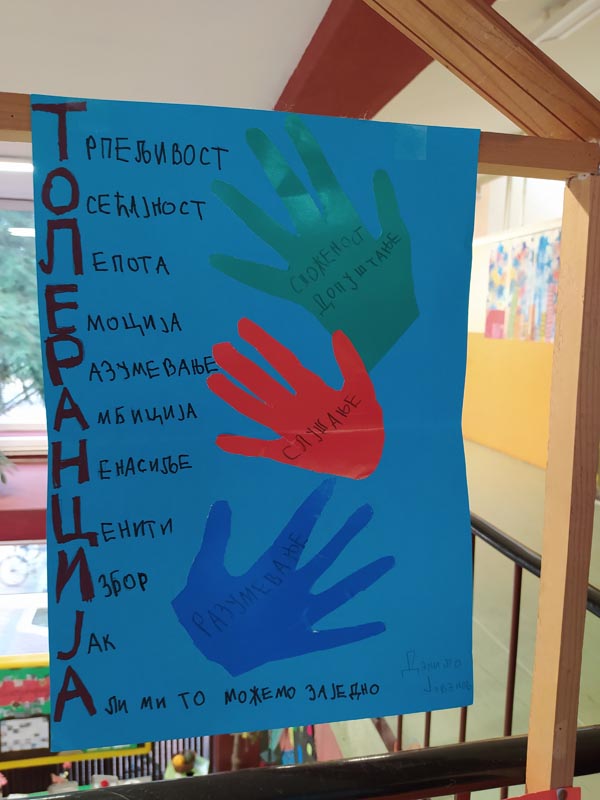 ТРПЕЉИВОСТ
ОСЕЋАЈНОСТ
ЛЕПОТА
ЕМОЦИЈА
РАЗУМЕВАЊЕ
АМБИЦИЈА
НЕНАСИЉЕ
ЦЕНИТИ
ИЗБОР
ЈАК
АЛИ МИ ТО МОЖЕМО ЗАЈЕДНО
СЛОЖЕНОСТ
ДОПУШТАЊЕ
СЛУШАЊЕ
РАЗУМЕВАЊЕ
Данило